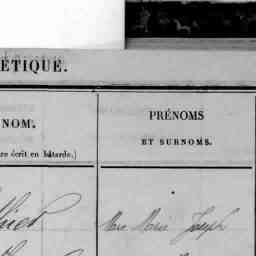 ÉTIQUE.
NOM.
PRÉNOMS
ET SURNOMS.
re écrit en bâtarde.)
Marie Joseph